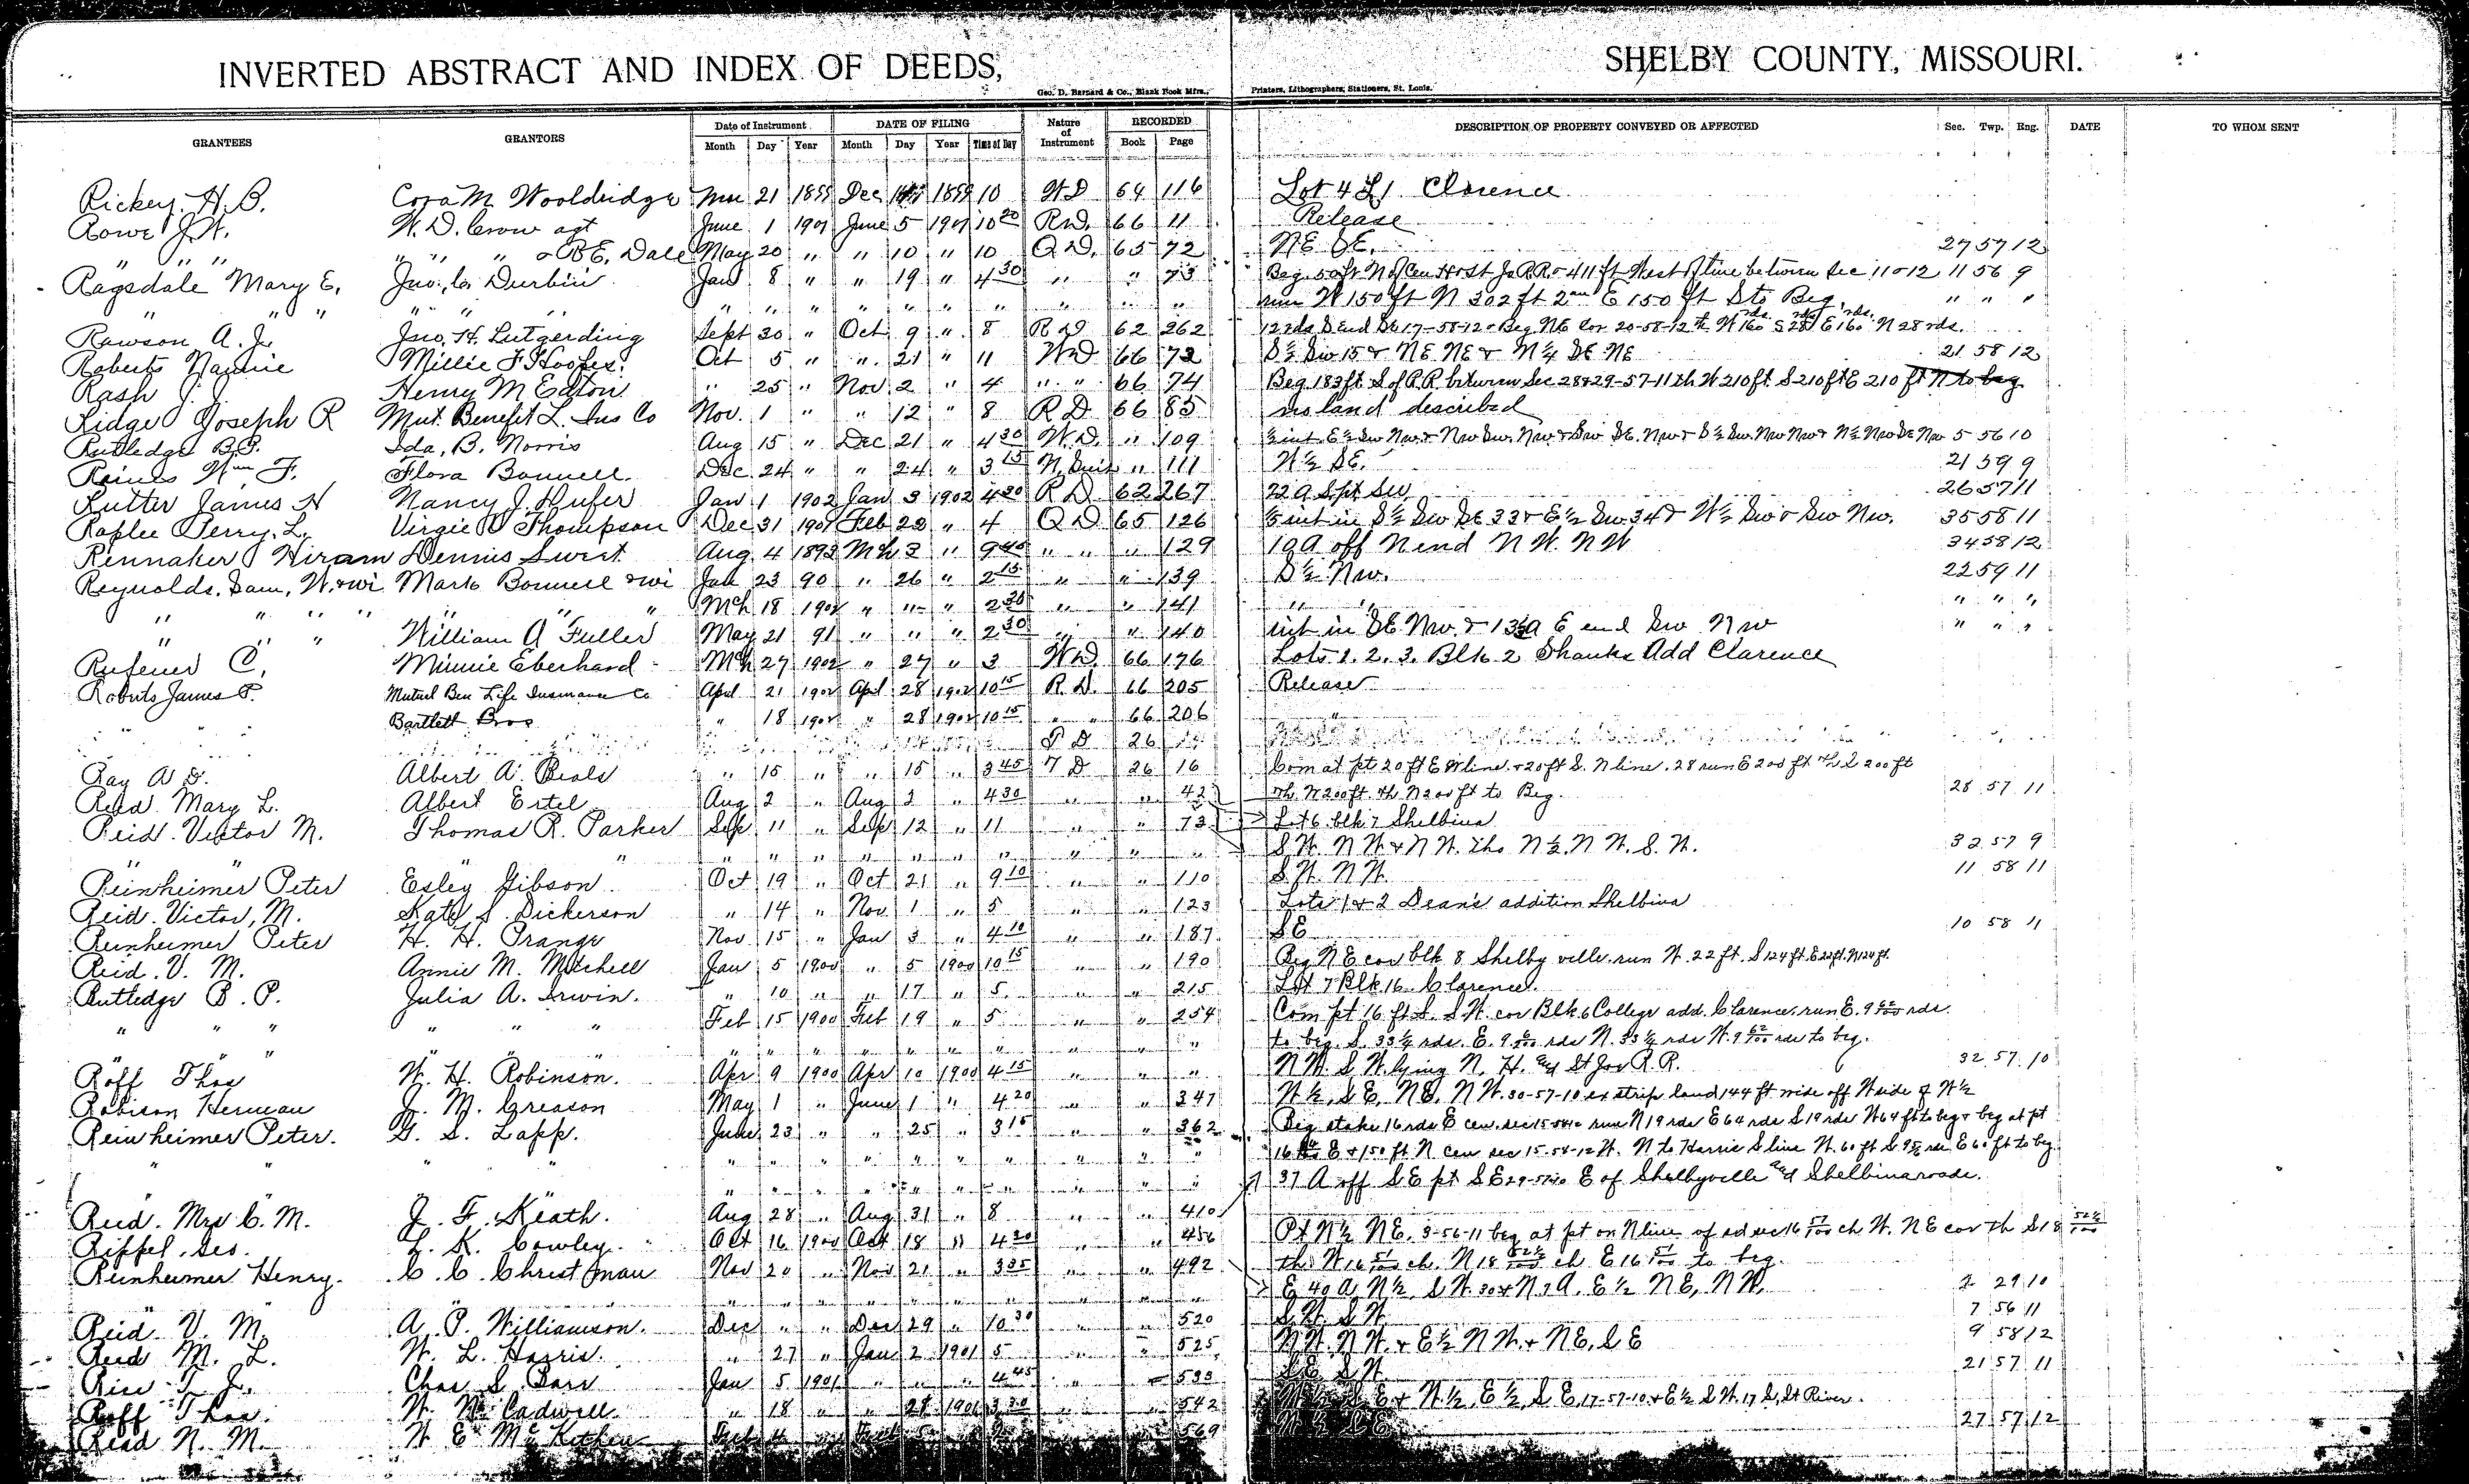 INVERTED ABSTRACT AND INDEX OF DEEDS, SHELBY COUNTY, MISSOURI.
Geo. D. Barnard & Co., Blank Book Mfrs., Printers, Lithographers, Stationers, St. Louis.
GRANTEES GRANTORS Date of Instrument DATE OF FILING Nature of Instrument RECORDED DESCRIPTION OF PROPERTY CONVEYED OR AFFECTED Sec. Twp. Rng. DATE TO WHOM SENT
Month Day Year Month Day Year Time of Day Book Page
Rickey H. B. Cora M Wooldridge 21 1899 Dec 1899 10 WD 64 116 Lot 4 Clarence
Rowe J. W. W. D. Crow agt June 1 1901 June 5 1901 10 20 R.D. 66 11 Release
" " " " " " & B E, Dale May 20 " " 10 " 10 Q D. 65 72 NE SE. 27 57 12
Ragsdale Mary E. Jno. C. Durbin Jan 8 " " 19 " 4 30 " " 73 Beg. 50 ft N of Cen H & St Jo RR & 411 ft West of line between Sec 11 & 12 11 56 9
" " " " " " " " " " " " " " " " run W 150 ft N 302 ft E 150 ft S to Beg. " " "
Rawson A. J. Jno. H. Lutgerding Sept 30 " Oct 9 " 8 R D 62 262 12 rds S End SE 17-58-12 & Beg NE Cor 20-58-12 th W 160 rds S 28 rds E 160 rds N 28 rds.
Roberts Nannie Millie F Hooper Oct 5 " " 21 " 11 WD 66 72 S½ SW 15 & NE NE & N¼ SE NE 21 58 12
Rash J. J. Henry M Eaton " 25 " Nov 2 " 4 " " 66 74 Beg 183 ft S of R.R between Sec 28 & 29-57-11 th W 210 ft S 210 ft E 210 ft N to beg
Ridge Joseph R Mut. Benefit L. Ins Co Nov. 1 " " 12 " 8 R D 66 85 no land described
Rutledge B. P. Ida, B. Norris Aug 15 " Dec 21 " 4 30 W.D. " 109 ½ int E½ SW NW & NW SW NW & SW SE NW & S½ SW NW NW & N½ NW SE NW 5 56 10
Raines Wm F. Flora Bonnell Dec 24 " " 24 " 3 15 " 111 W½ SE. 21 59 9
Rutter James H Nancy J. Hufer Jan 1 1902 Jan 3 1902 4 30 R D 62 267 22 a S pt SW 26 57 11
Raplee Perry L. Virgie Thompson Dec 31 1901 Feb 28 " 4 Q D 65 126 int in S½ SW SE 33 & E½ SW 34 & W½ SW & SW NW. 35 58 11
Rennaker Hiram Dennis Swert Aug 4 1893 Mch 3 " 9 45 " " " 129 19 A off N end NW. NW 34 58 12
Reynolds. Sam, W. & wi Mark Bonnell & wi 23 90 " 26 " 2 15 " " 139 S½ NW. 22 59 11
" " " " " " " Mch 18 1902 " " " 2 30 " " 141 " " " " "
" " " William A Fuller May 21 91 " " " 2 30 " " 140 int in SE NW. & 13 a E end SW NW " " "
Rufener C, Minnie Eberhard Mch 27 1902 " 27 " 3 WD. 66 176 Lots 1. 2. 3. Blk 2 Shanks Add Clarence
Roberts James P. Mutual Ben Life Insurance Co April 21 1902 April 28 1902 10 15 R. D. 66 205 Release
Bartlett Bros " 18 1902 " 28 1902 10 15 " " 66 206 "
26
Ray A D. Albert A. Beals " 15 " " 15 " 3 45 " D 26 16 Com at pt 20 ft E W line & 20 ft S. N line. 28 run E 200 ft th S 200 ft
Reid Mary L. Albert Ertel Aug 2 " Aug 3 " 4 30 " " 42 th. W 200 ft. th N 200 ft to Beg. 28 57 11
Reid. Victor M. Thomas R. Parker Sep 11 " Sep 12 " 11 " " 73 Lot 6 blk 7 Shelbina
" " " " " " " " " " " " " S. W. N W & N W. N½. N W. S. W. 32 57 9
Reinheimer Peter Esley Gibson Oct 19 " Oct 21 " 9 10 " " 110 S. W. N W. 11 58 11
Reid. Victor, M. Kate S. Dickerson " 14 " Nov. 1 " 5 " " 123 Lots 1 & 2 Dean's addition Shelbina
Reinheimer Peter H. H. Prange Nov 15 " Jan 3 " 4 10 " " 187 S E 10 58 11
Reid. V. M. Annie M. Mitchell Jan 5 1900 " 5 1900 10 15 " " 190 Beg N E cor blk 8 Shelbyville. run W. 22 ft. S 124 ft. E 22 ft. N 124 ft.
Rutledge B. P. Julia A. Irwin. " 10 " " 17 " 5. " " 215 Lot 7 Blk 16 Clarence.
" " " " " " Feb 15 1900 Feb 19 " 5 " " 254 Com pt 16 ft S. S. W. cor Blk 6 College add. Clarence. run E. 9 rds.
" " " " " " " " " " " " " " " " to beg. S. 33⅓ rds. E. 9 rds N. 33⅓ rds W. 9 rds to beg.
Roff Thos W. H. Robinson. Apr 9 1900 Apr 10 1900 4 15 " " " N W. S W. lying N. H. and St Joe R. R. 32 57 10
Robison Herman J. M. Creason May 1 " June 1 " 4 20 " " 347 W½, S E, N E, N W. 30-57-10 ex strip land 144 ft wide off W side of W½
Reinheimer Peter. G. S. Lapp. June 23 " " 25 " 3 15 " " 362 Beg stake 16 rds E cen. sec 15-58-12 run N 19 rds E 64 rds S 19 rds W 64 ft to beg & beg at pt
" " " " " " " " " " " " 16 E & 150 ft N cen sec 15-58-12 W. N to Harris S line W. 60 ft S. rds E 60 ft to beg.
" " " " " " " " " " 37 A off S E pt S E 29-57-10 E of Shelbyville and Shelbina roade.
Reid. Mrs C. M. J. F. Keath. Aug 28 " Aug 31 " 8 " " 410
Riffel. Geo. L. K. Cowley. Oct 16 1900 Oct 18 " 4 30 " " 456 Pt N½ NE. 3-56-11 beg at pt on N line of sd sec 16 51/100 ch W. N E cor th S 18
Reinheimer Henry. C. C. Christman Nov 20 " Nov 21 " 3 35 " " 492 th W 16 51/100 ch. N 18 ch E 16 51/100 to beg.
" " " " " " " " " " " " E 40 A, N½. S W. 30 & N 7 A. E½ N E, N W. 29 10
Reid. V. M. A. P. Williamson. Dec " " Dec 29 " 10 30 " " 520 S. W. S W. 7 56 11
Reid M. L. W. L. Harris. " 27 " Jan 2 1901 5 " " 525 N W. N W. & E½ N W. & N E, S E 9 58 12
Rice T. J. Chas S. Jan 5 1901 " " " 4 45 " " 533 S E. S W. 21 57 11
Roff Thos. W. W. Cadwell. " 18 " " 28 1901 3 30 " " 542 S E & W.½, E½, S E, 17-57-10 & E½ S W. 17 S, St River.
Read N. M. W. E. Feb 4 " Feb 5 " " " 569 W½ S E 27 57 12